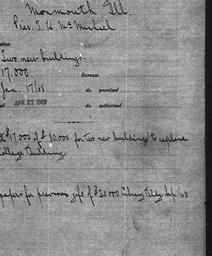 Monmouth Ill
Pres. T. H. McMichael
Two new buildings.
17,000
Increase
Jan 17/08
do. promised
APR 27 1909
do. authorised
$17,000 of $30,000 for two new buildings to replace
College Building.
papers for previous gift of $30,000 Library Bldg